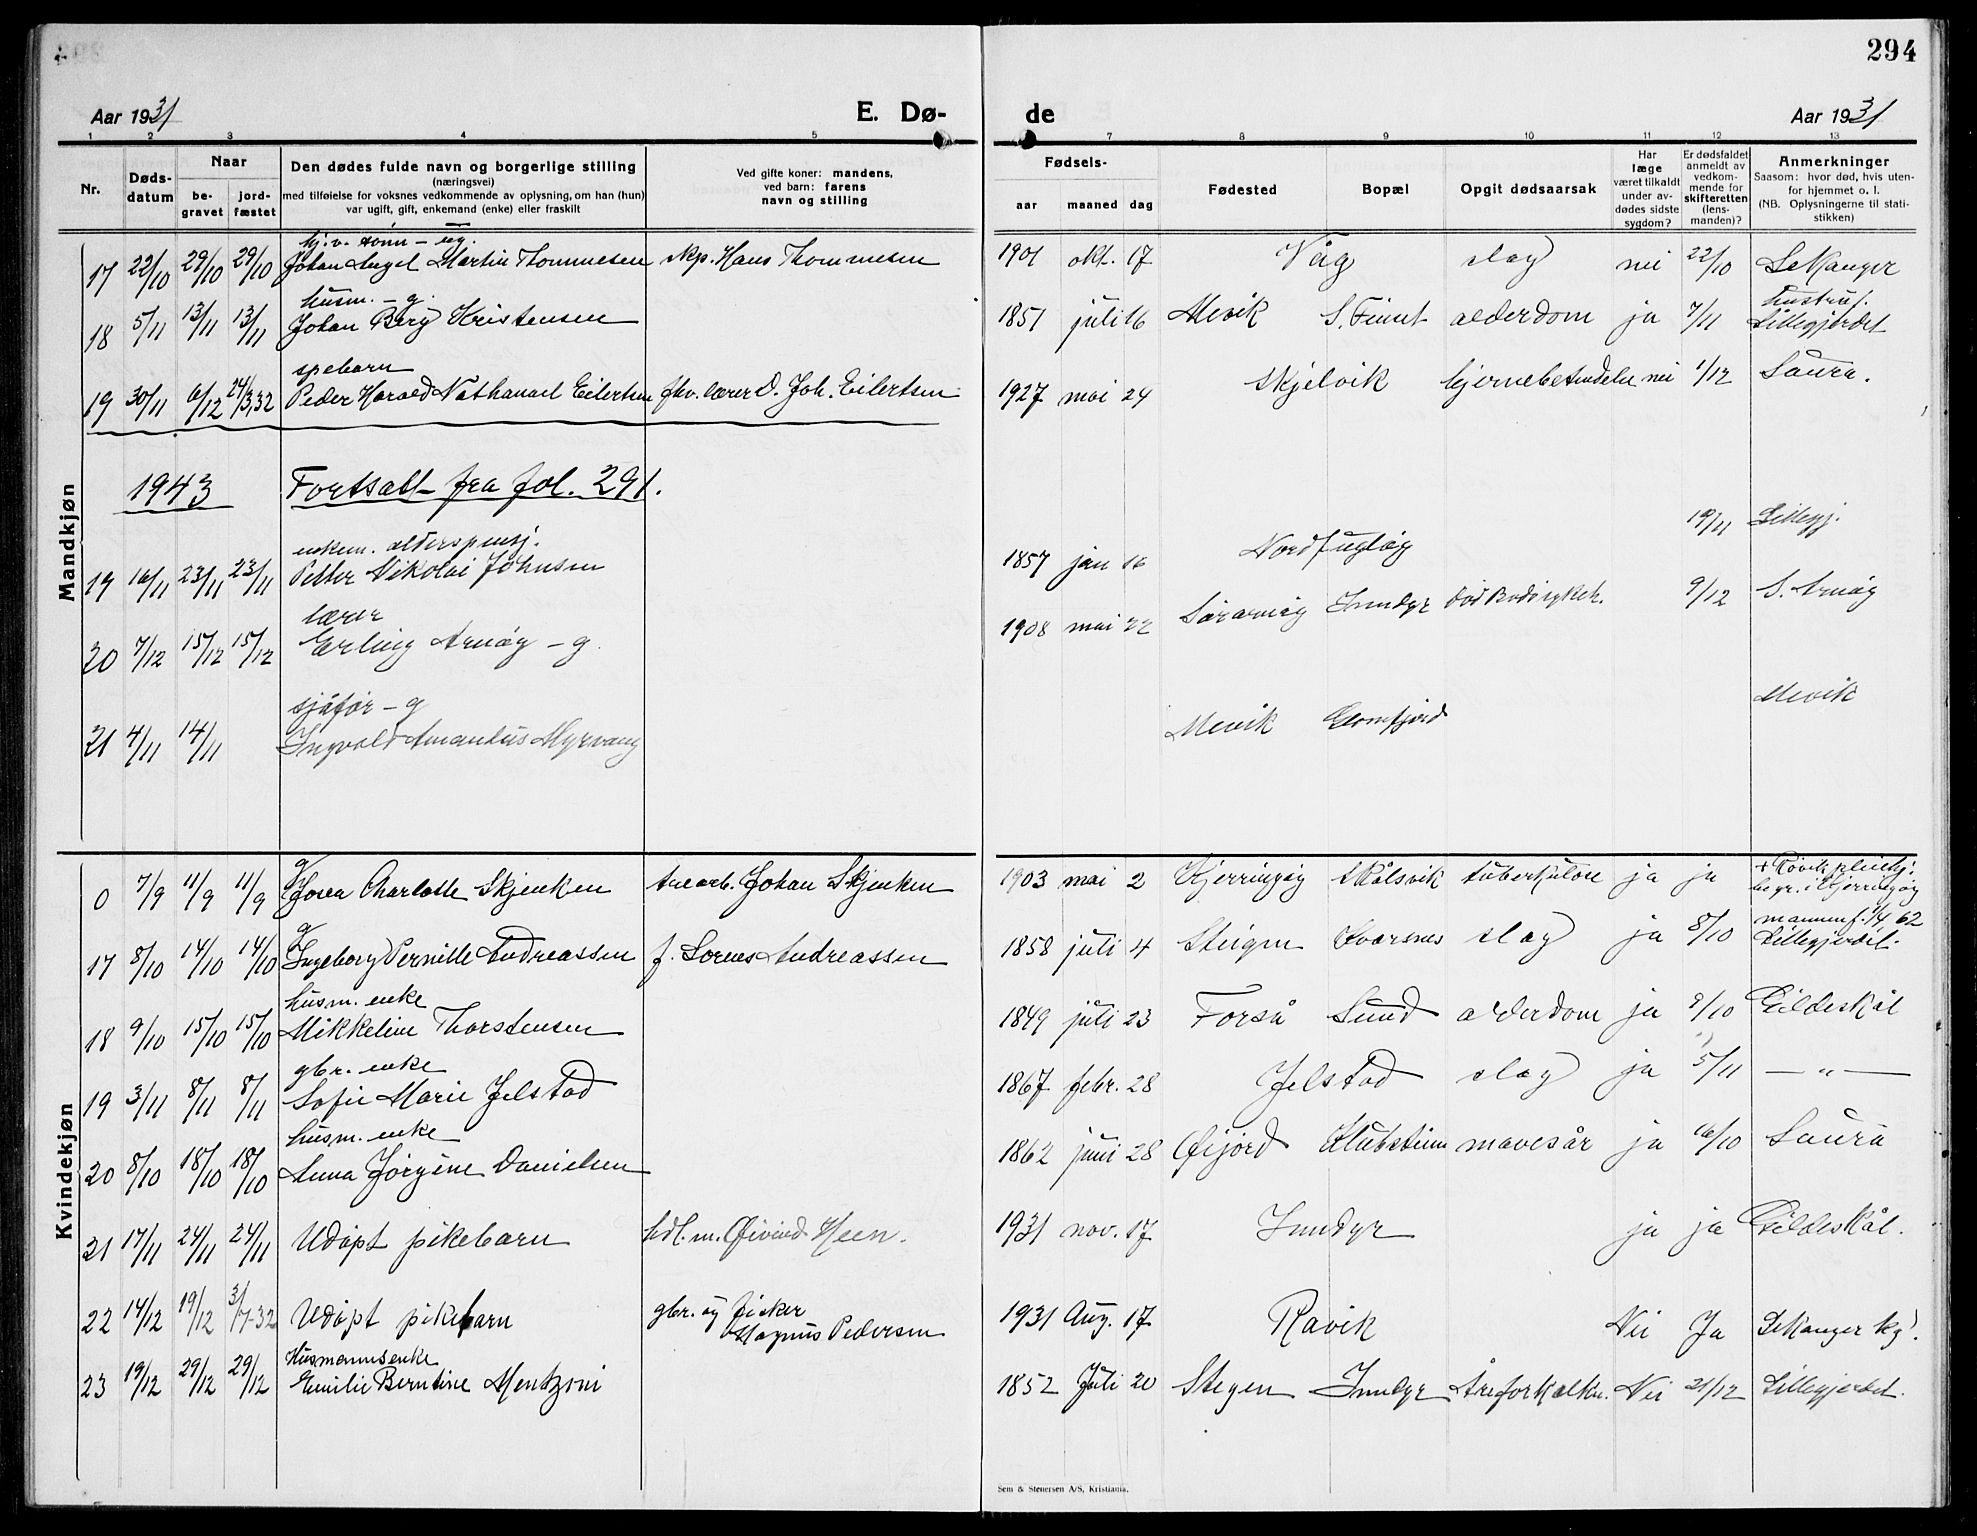 294
Aar 1931 E. Dø- de Aar 1931
1 2 3 4 5 7 8 9 10 11 12 13
Nr. Døds-datum Naar be-gravet jord-fæstet Den dødes fulde navn og borgerlige stilling (næringsvei) med tilføielse for voksnes vedkommende av oplysning, om han (hun) var ugift, gift, enkemand (enke) eller fraskilt Ved gifte koner: mandens, ved barn: farens navn og stilling Fødsels- aar maaned dag Fødested Bopæl Opgit dødsaarsak Har læge været tilkaldt under av-dødes sidste sygdom? Er dødsfaldet anmeldt av vedkom-mende for skifteretten (lens-manden)? Anmerkninger Saasom: hvor død, hvis uten-for hjemmet o. l. (NB. Oplysningerne til stati-stikken)
Mandkjøn
hj.v. sønn - ug.
17 22/10 29/10 29/10 Johan Angel Martin Thommesen skp. Hans Thommesen 1901 okt. 17 Våg slag nei 22/10 Sekanger
husm. - g. hustru f.
18 5/11 13/11 13/11 Johan Berg Kristensen 1851 juli 16 Mevik S. Finnt alderdom ja 7/11 Lillegjerdet
spebarn
19 30/11 6/12 24/3,32 Peder Harald Nathanael Eilertsen fhv. lærer D. Joh. Eilertsen 1927 mai 24 Skjelvik hjernebetendelse nei 1/12 Saura.
1943 Fortsatt fra fol. 291.
enkem. alderspensj.
19 16/11 23/11 23/11 Petter Nikolai Johnsen 1857 jan 16 Nordfugløy 19/11 Lillegj.
lærer
20 7/12 15/12 15/12 Erling Arnøy - g. 1908 mai 22 Sørarnøy Inndyr død Bodø sykeh. 9/12 S. Arnøy
sjåfør - g
21 4/11 14/11 Ingvald Amandus Myrvang Mevik Glomfjord Mevik
Kvindekjøn
g + Røvik pleiehj.
0 7/9 11/9 11/9 Jova Charlotte Skjenken anl.arb. Johan Skjenken 1903 mai 2 Kjerringøy Skålsvik tuberkulose ja ja begr. i Kjerringøy
g mannen f. 1/4 62
17 8/10 14/10 14/10 Ingeborg Pernille Andreassen f. Sorens Andreassen 1858 juli 4 Steigen Kvarsnes slag ja 8/10 Lillegjerdet.
husm. enke
18 9/10 15/10 15/10 Mikkeline Thorstensen 1849 juli 23 Forså Sund alderdom ja 9/10 Gildeskål
gbr. enke
19 3/11 8/11 8/11 Sofie Marie Jelstad 1867 febr. 28 Jelstad slag ja 5/11 — " —
husm. enke
20 8/10 18/10 18/10 Anna Jørgine Danielsen 1862 juni 28 Øijord Klubstinn mavesår ja 16/10 Saura
21 17/11 24/11 24/11 Udøpt pikebarn hdl.m. Øivind Meen. 1931 nov. 17 Inndyr ja ja Gildeskål.
gbr. og fisker
22 14/12 19/12 3/7-32 Udøpt pikebarn Magnus Pedersen 1931 Aug. 17 Ravik Nei Ja Sekanger kg!.
Husmannsenke
23 19/12 29/12 29/12 Emilie Berntine Mentzoni 1852 Juli 20 Stegen Inndyr Åreforkalkn. Nei 21/12 Lillegjerdet.
Sem & Stenersen A/S, Kristiania.